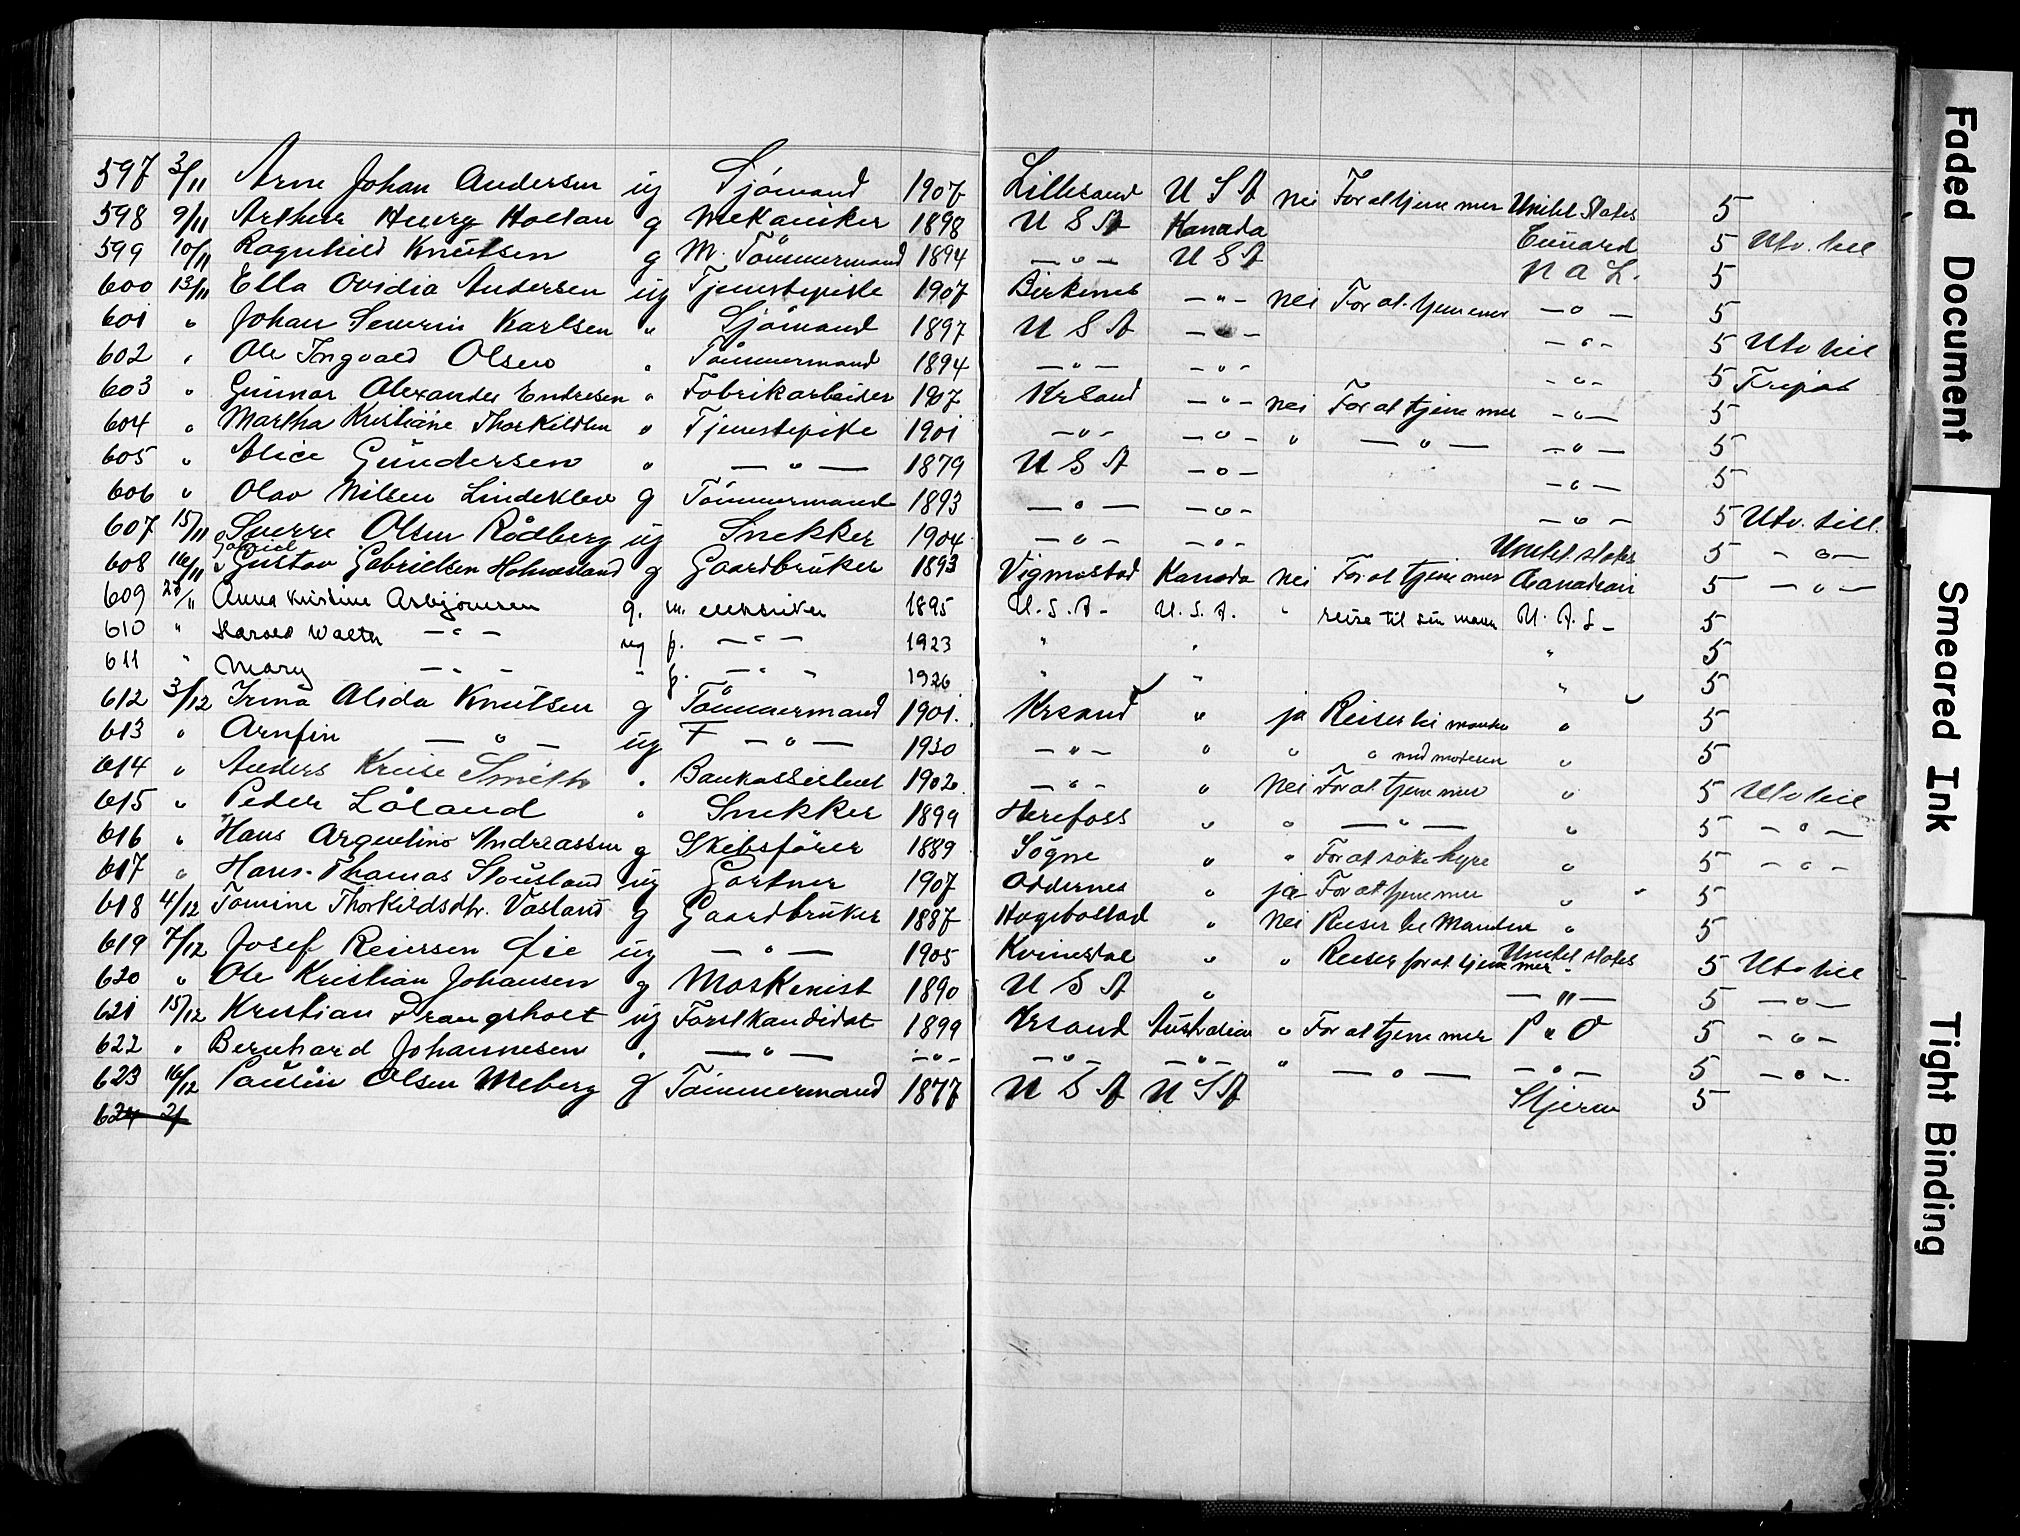 597 3/11 Arne Johan Andersen ug Sjömand 1907 Lillesand U S A nei For at tjene mer United States 5
598 9/11 Arthur Henry Holtan g Mekaniker 1898 U S A Kanada Cunard 5 Utv. till
599 10/11 Ragnhild Knutsen g M. Tömmermand 1894 — " — U S A N A L. 5
600 13/11 Ella Ovidia Andersen ug Tjenstepike 1907 Birkenes — " — nei For at tjene mer — " — 5
601 " Johan Severin Karlsen " Sjömand 1897 U S A — " — — " — 5 Utv till
602 " Ole Ingvald Olsen " Tömmermand 1894 — " — — " — — " — 5 Fripas
603 " Gunnar Alexander Endresen " Fabrikarbeider 1907 Krsand — " — nei For at tjene mer — " — 5
604 " Martha Kristiane Thorkildsen " Tjenstepike 1901 — " — — " — " — " — — " — 5
605 " Alice Gundersen " — " — 1879 U S A — " — — " — 5
606 " Olav Nilsen Lindeklev g Tömmermand 1893 — " — — " — — " — 5 Utv. till.
607 15/11 Sverre Olsen Rödberg ug Snekker 1904 — " — — " — United states 5 — " —
608 16/11 Gabriel Gustav Gabrielsen Holmesland g Gaardbruker 1893 Vigmostad Kanada nei For at tjene mer Canadian 5 — " —
609 28/11 Anna Kristine Asbjörnsen g. m. elektriker 1895 U.S.A. U.S.A. " reise til sin mann N.A.L. 5
610 " Harold Walter — " — ug f. — " — 1923 " " " 5
611 " Mary — " — " f. — " — 1926 " " " 5
612 3/12 Irma Alida Knutsen g Tömmermand 1901. Krsand " ja Reiser til manden " 5
613 " Arnfin — " — ug F — " — 1930 — " — " " " med moderen " 5
614 " Anders Kruse Smith " Bankassistent 1902 — " — " nei For at tjene mer " 5 Utv till
615 " Peder Löland " Snekker 1899 Herefoss " " — " — " 5 — " —
616 " Hans Argentino Andreassen g Skibsförer 1889 Sögne " " For at söke hyre " 5 — " —
617 " Hans Thomas Stousland ug Gartner 1907 Oddernes " ja For at tjene mer " 5
618 4/12 Tomine Thorkildsdtr. Vasland g Gaardbruker 1887 Hægebostad " nei Reiser til Manden " 5
619 7/12 Josef Reiersen Öie ug — " — 1905 Kvinesdal " " Reiser for at tjene mer United states 5 Utv till
620 " Ole Kristian Johansen g Maskinist 1890 U S A " — " — 5 — " —
621 15/12 Kristian Drangsholt ug Forstkandidat 1899 Krsand Australien " For at tjene mer P & O 5 — " —
622 " Bernhard Johannesen " — " — — " — — " — — " — " — " — — " — 5 — " —
623 16/12 Paulin Olsen Meberg g Tömmermand 1877 U S A U S A Stjerne 5
624 21
Faded Document
Smeared Ink
Tight Binding